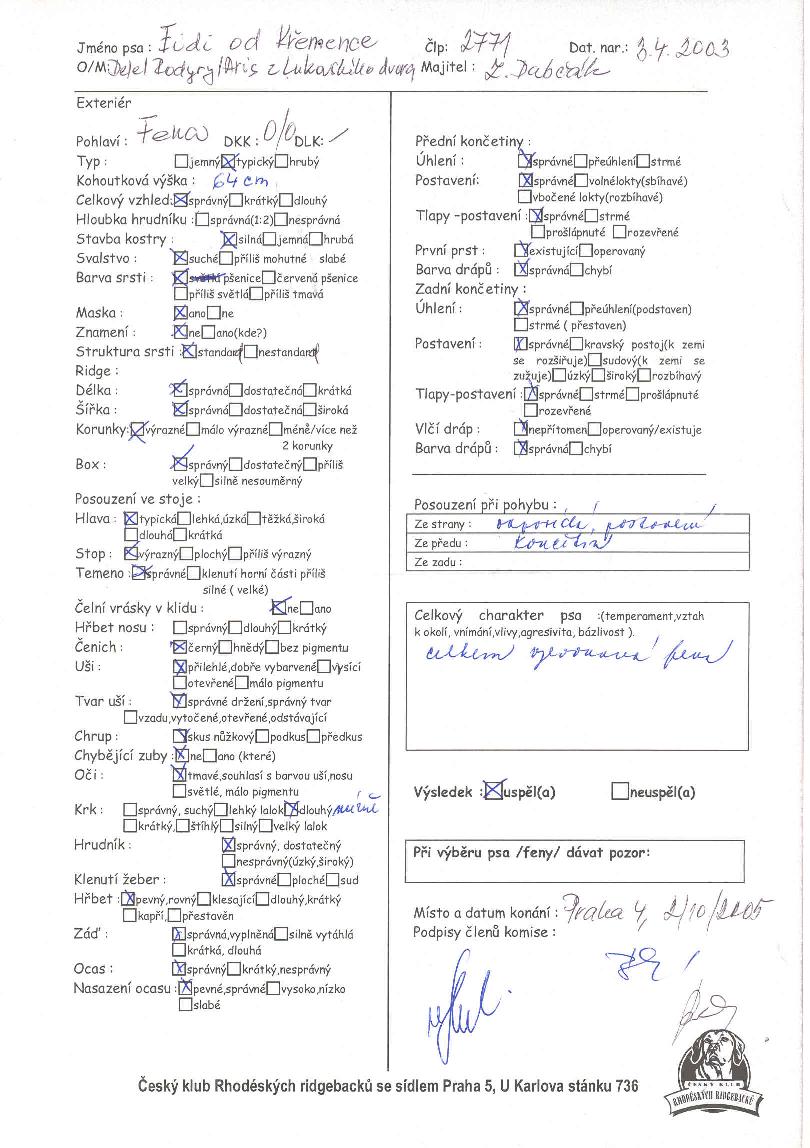 Jméno psa : Fidi od Křemence Člp: 2771 Dat. nar.: 3.4.2003
O/M: Dejel Rodyry/Aris z Lukašského dvora Majitel : Z. Dabčák
Exteriér
Pohlaví : Fena DKK : 0/0 DLK: /
Typ : jemný typický hrubý
Kohoutková výška : 64 cm
Celkový vzhled: správný krátký dlouhý
Hloubka hrudníku : správná(1:2) nesprávná
Stavba kostry : silná jemná hrubá
Svalstvo : suché příliš mohutné slabé
Barva srsti : světlá pšenice červená pšenice
příliš světlá příliš tmavá
Maska : ano ne
Znamení : ne ano(kde?)
Struktura srsti : standard nestandard
Ridge :
Délka : správná dostatečná krátká
Šířka : správná dostatečná široká
Korunky: výrazné málo výrazné méně/více než
2 korunky
Box : správný dostatečný příliš
velký silně nesouměrný
Posouzení ve stoje :
Hlava : typická lehká,úzká těžká,široká
dlouhá krátká
Stop : výrazný plochý příliš výrazný
Temeno : správné klenutí horní části příliš
silné ( velké)
Čelní vrásky v klidu : ne ano
Hřbet nosu : správný dlouhý krátký
Čenich : černý hnědý bez pigmentu
Uši : přilehlé,dobře vybarvené vysící
otevřené málo pigmentu
Tvar uší : správné držení,správný tvar
vzadu,vytočené,otevřené,odstávající
Chrup : skus nůžkový podkus předkus
Chybějící zuby : ne ano (které)
Oči : tmavé,souhlasí s barvou uší,nosu
světlé, málo pigmentu
Krk : správný, suchý lehký lalok dlouhý, mírně
krátký, štíhlý silný velký lalok
Hrudník : správný, dostatečný
nesprávný(úzký,široký)
Klenutí žeber : správné ploché sud
Hřbet : pevný,rovný klesající dlouhý,krátký
kapří, přestavěn
Záď : správná,vyplněná silně vytáhlá
krátká, dlouhá
Ocas : správný krátký,nesprávný
Nasazení ocasu : pevné,správné vysoko,nízko
slabé
Přední končetiny :
Úhlení : správné přeúhlení strmé
Postavení: správné volnélokty(sbíhavé)
vbočené lokty(rozbíhavé)
Tlapy -postavení : správné strmé
prošlápnuté rozevřené
První prst : existující operovaný
Barva drápů : správná chybí
Zadní končetiny :
Úhlení : správné přeúhlení(podstaven)
strmé ( přestaven)
Postavení : správné kravský postoj(k zemi
se rozšiřuje) sudový(k zemi se
zužuje) úzký široký rozbíhavý
Tlapy-postavení : správné strmé prošlápnuté
rozevřené
Vlčí dráp : nepřítomen operovaný/existuje
Barva drápů : správná chybí
Posouzení při pohybu :
Ze strany : odpovídá postavení
Ze předu : končetin
Ze zadu :
Celkový charakter psa :(temperament,vztah
k okolí, vnímání,vlivy,agresivita, bázlivost ).
celkem vyrovnaná fena
Výsledek : uspěl(a) neuspěl(a)
Při výběru psa /feny/ dávat pozor:
Místo a datum konání : Praha 4, 2/10/2005
Podpisy členů komise :
ČESKÝ KLUB
RHODÉSKÝCH RIDGEBACKŮ
Český klub Rhodéských ridgebacků se sídlem Praha 5, U Karlova stánku 736